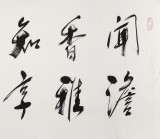 聞澹
香雅
知享